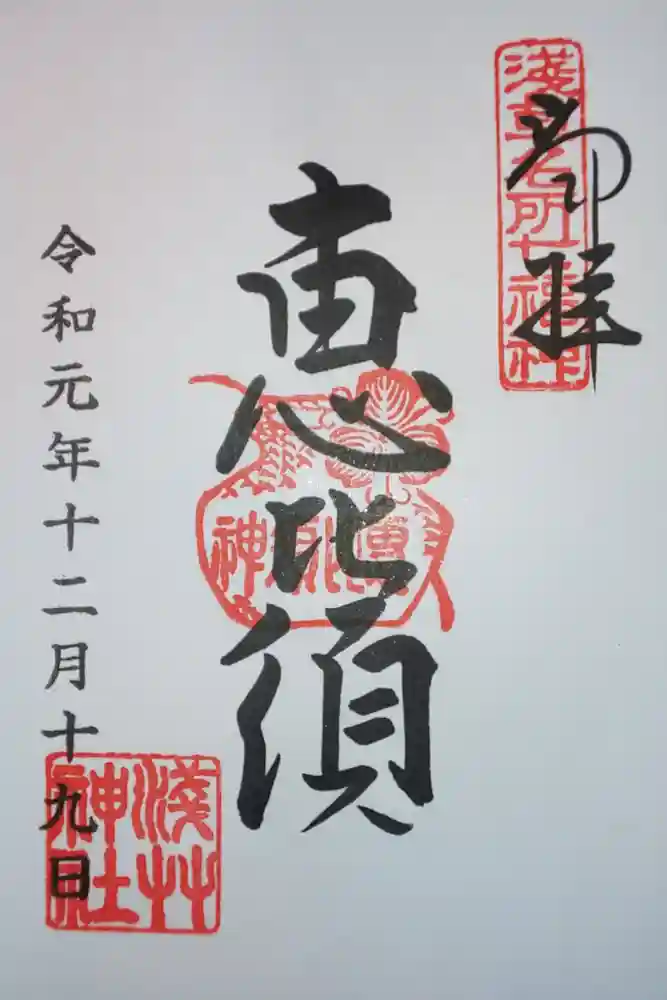 奉拝
淺草名所七福神
恵比須
恵比須神
令和元年十二月十九日
淺草神社